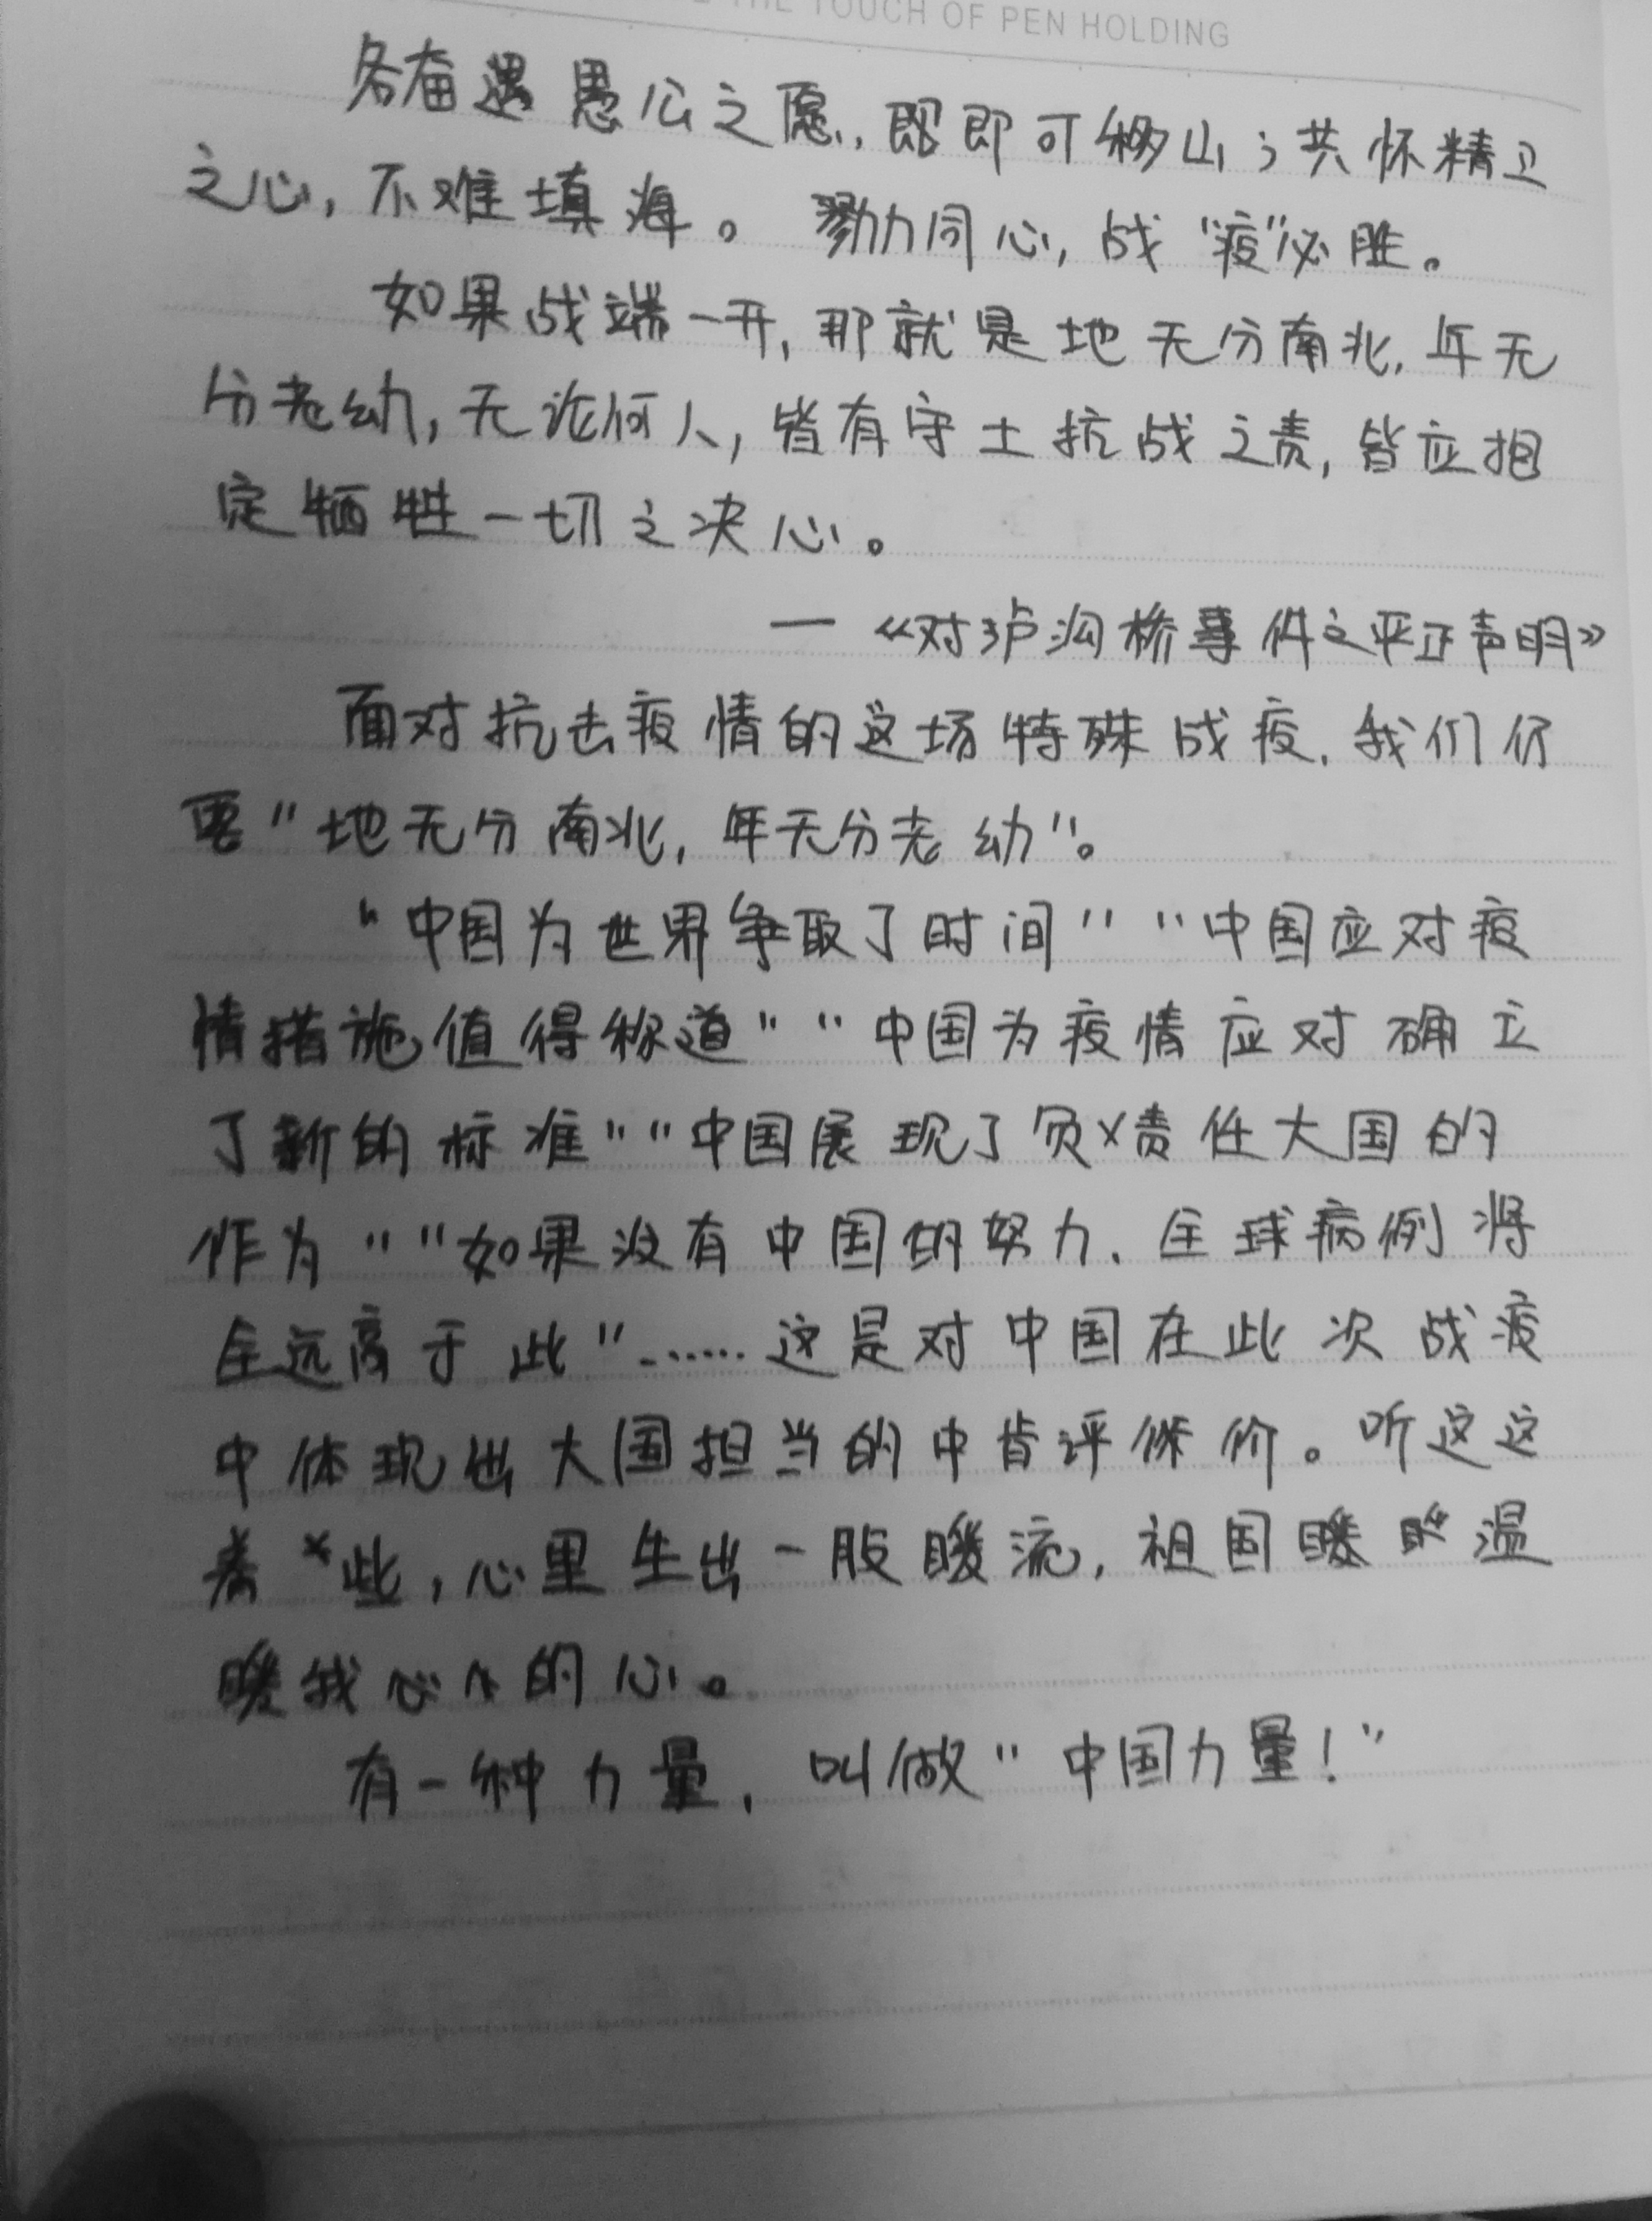 THE TOUCH OF PEN HOLDING
各奋遇愚公之愿,即即可移山;共怀精卫
之心,不难填海。勠力同心,战“疫”必胜。
如果战端一开,那就是地无分南北,年无
分老幼,无论何人,皆有守土抗战之责,皆应抱
定牺牲一切之决心。
—《对泸沟桥事件之严正声明》
面对抗击疫情的这场特殊战疫,我们仍
要“地无分南北,年无分老幼”。
“中国为世界争取了时间”“中国应对疫
情措施值得称道”“中国为疫情应对确立
了新的标准”“中国展现了负责任大国的
作为”“如果没有中国的努力,全球病例将
全远高于此”……这是对中国在此次战疫
中体现出大国担当的中肯评价。听这这
着些,心里生出一股暖流,祖国暖温
暖我心的心。
有一种力量,叫做“中国力量!”